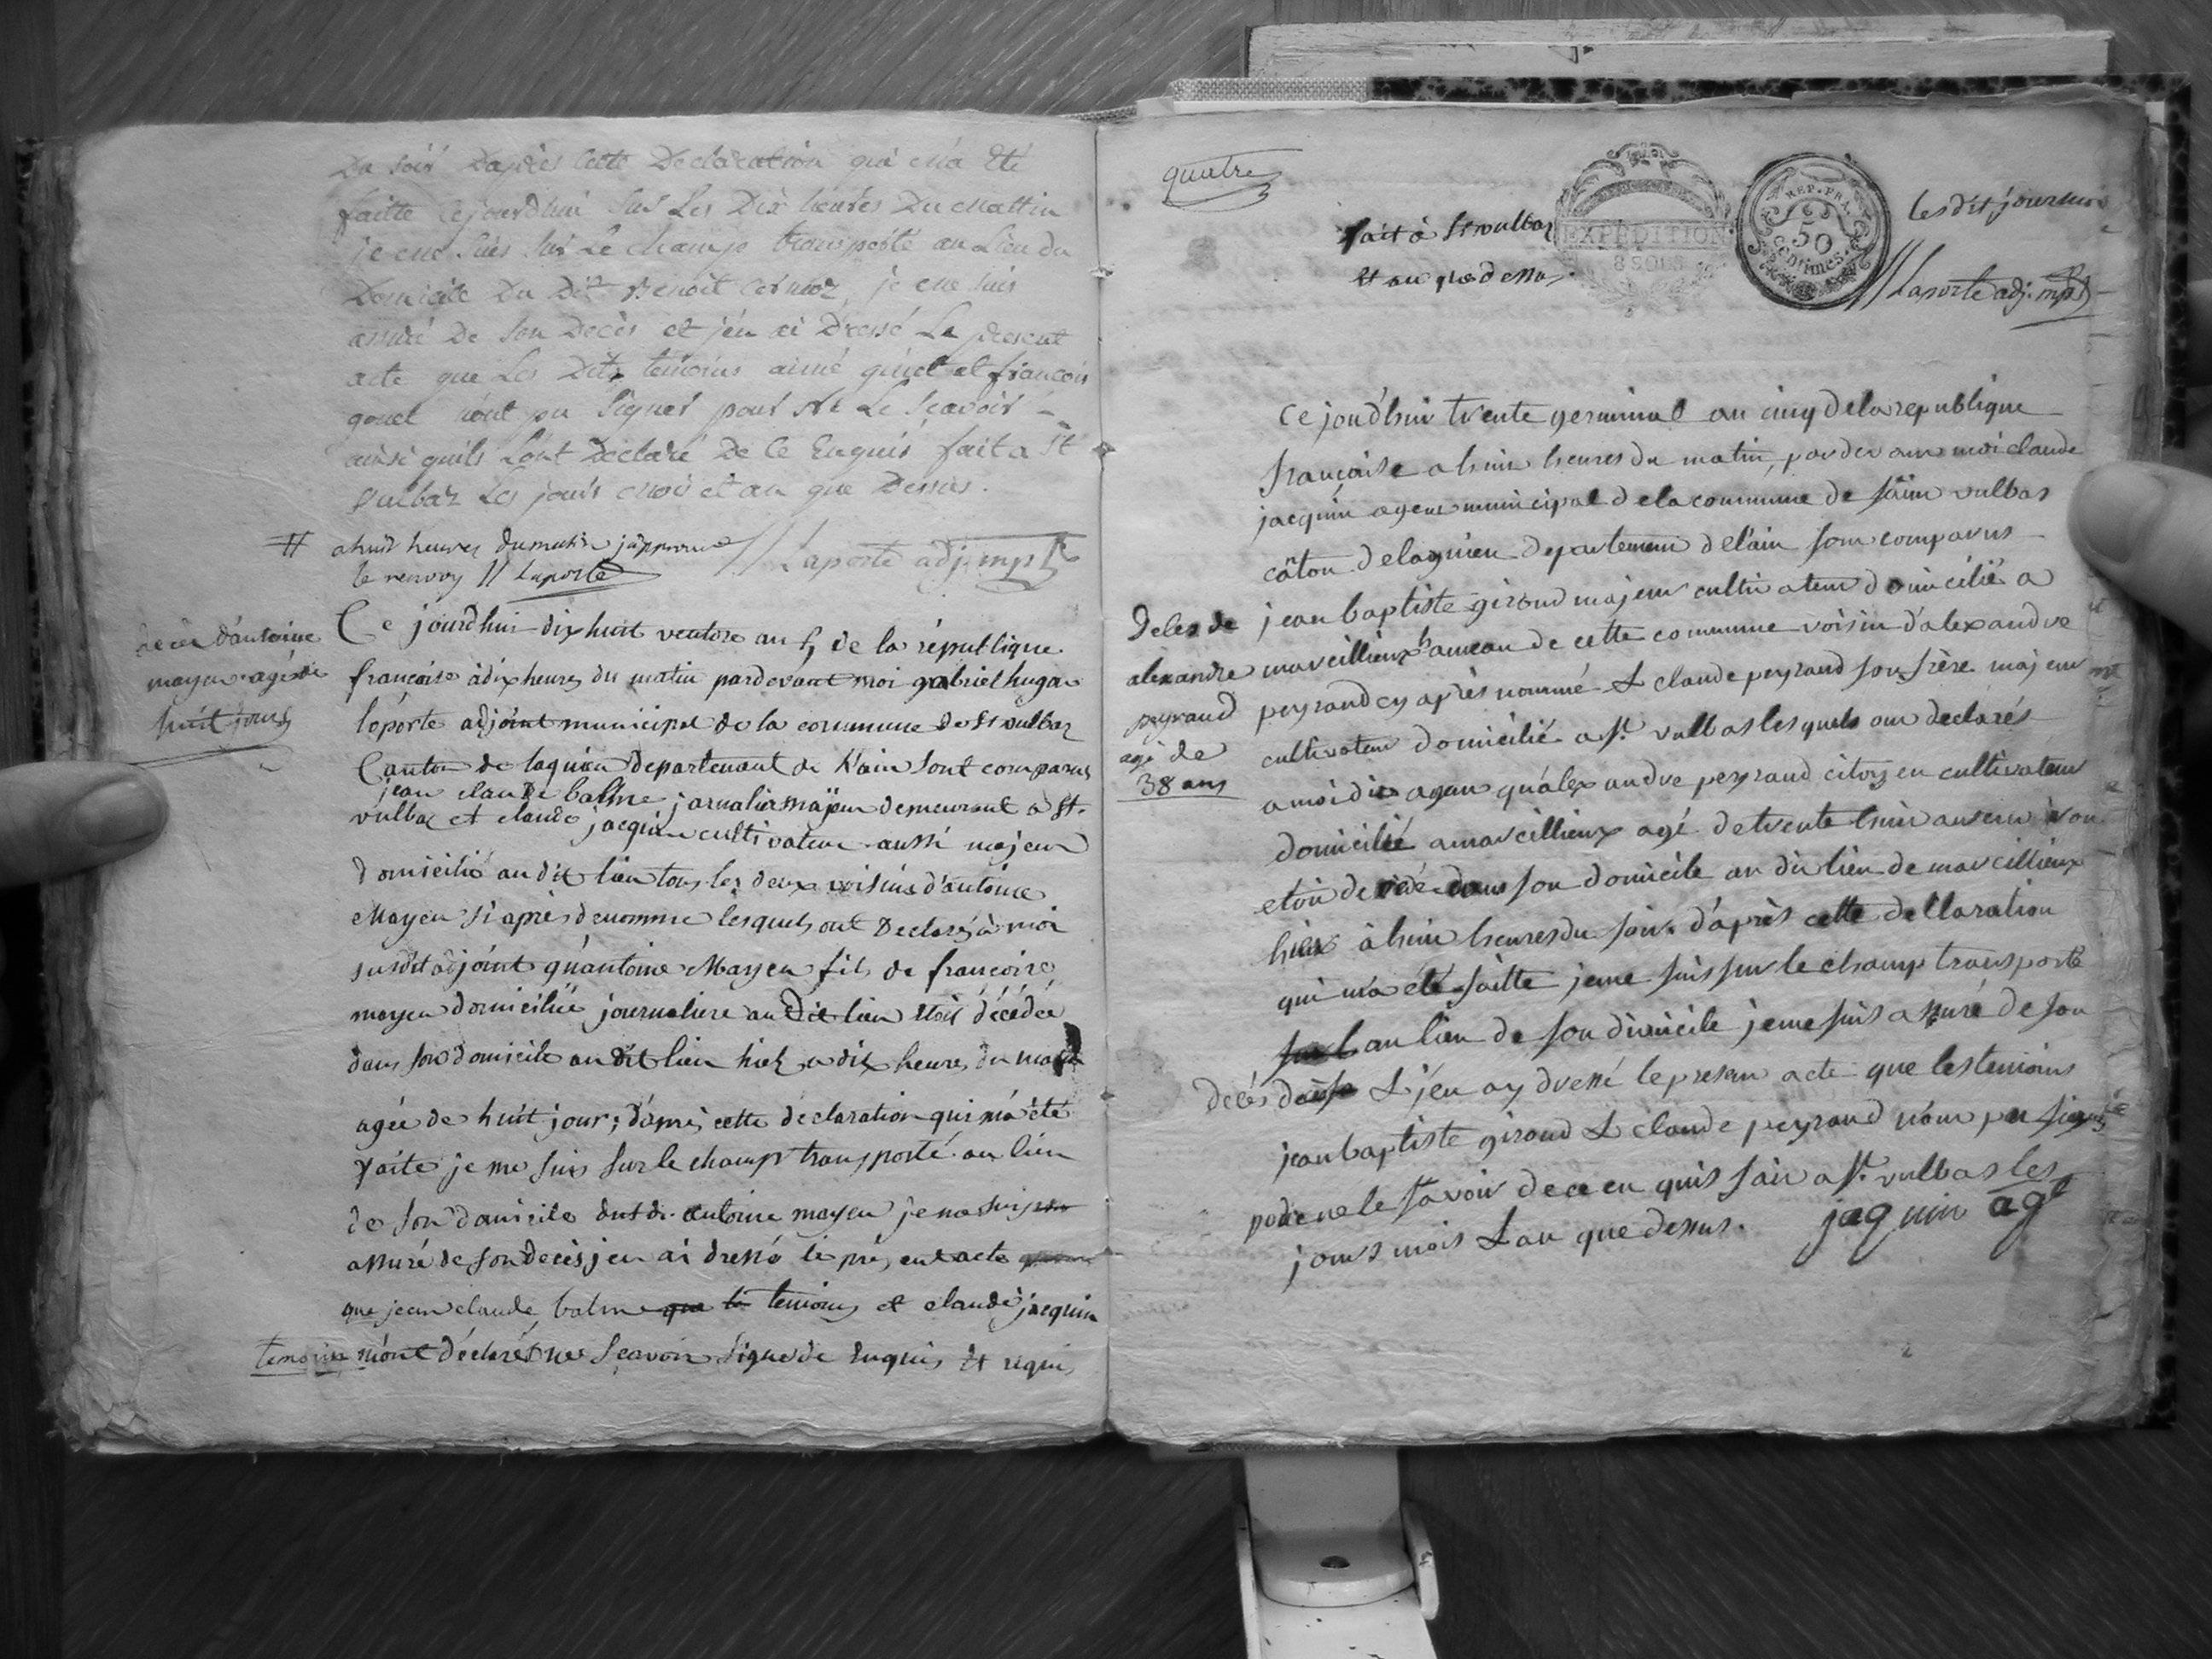 Du soir Daprès Cette Declaration qui m'a Eté
faitte Cejourdhui sur Les Dix heures Du Mattin
je me suis sur Le champ transporté au Lieu du
Domicile Du Dit Benoit je me suis
assuré De son Decès et j'en ai Dressé Le present
acte que Les Dits temoins aimé et françois
gonet n'ont pu Signer pour Ne Le Sçavoir
ainsi quils L'ont Declaré De Ce Enquis fait a St
Vulbaz Les jours mois et an que Dessus.
# a huit heures du matin j'approuve
le renvoy // Laporte
// Laporte adj. mpl
decès d'antoine
mayen agé de
huit jours
Ce jourdhui dix huit ventose an 5 de la république
françoise à dix heures du matin pardevant moi gabriel hugon
laporte adjoint municipal de la commune de St vulbaz
Canton de lagnieu departement de l'ain sont comparus
jean claude balme jornalier majeur demeurant a St.
vulbaz et claude jacquin cultivateur aussi majeur
domicilié au dit lieu tous les deux voisins d'antoine
Mayen si après denommé lesquels ont Declaré à moi
susdit adjoint qu'antoine Mayen fils de françoise
mayen domiciliée journaliere au Dit lieu etoit décédée
dans son domicile au dit lieu hier a dix heures du matin
agée de huit jour; d'après cette déclaration qui m'a été
faite je me suis sur le champ transporté au lieu
de son domicile dudit antoine mayen je me suis
assuré de son decès jen ai dressé le présent acte
que jean claude balme que le temoins et claude jacquin
temoins m'ont déclaré ne sçavoir signer de enquis et requis
quatre
fait à St vulbaz
EXPEDITION
8 SOUS
REP. FRA.
50
centimes
les dit jour mois
et an que dessus
// Laporte adj. mpl
Ce jourd'hui trente germinal an cinq de la republique
française a huit heures du matin, pardevant moi claude
jacquin agent municipal de la commune de saint vulbas
câton de lagnieu departement de l'ain sont comparus
Deles de
alexandre
peyraud
agé de
38 ans
jean baptiste giroud majeur cultivateur domicilié a
marcillieux hameau de cette commune voisin d'alexandre
peyraud cy après nommé & claude peyraud son frère majeur
cultivateur domicilié a St. vulbas lesquels ont declarés
a moi dit agent qu'alexandre peyraud citoyen cultivateur
domicilié a marcillieux agé de trente huit ans environ
etoit décédé dans son domicile au dit lieu de marcillieux
hier à huit heures du soir. d'après cette declaration
qui m'a été faitte je me suis sur le champ transporté
au lieu de son domicile je me suis assuré de son
decés & j'en ay dressé le present acte que les temoins
jean baptiste giroud & claude peyraud n'ont pu signé
pour ne le savoir de ce enquis fait a St. vulbas les
jours mois & an que dessus. jaquin agt